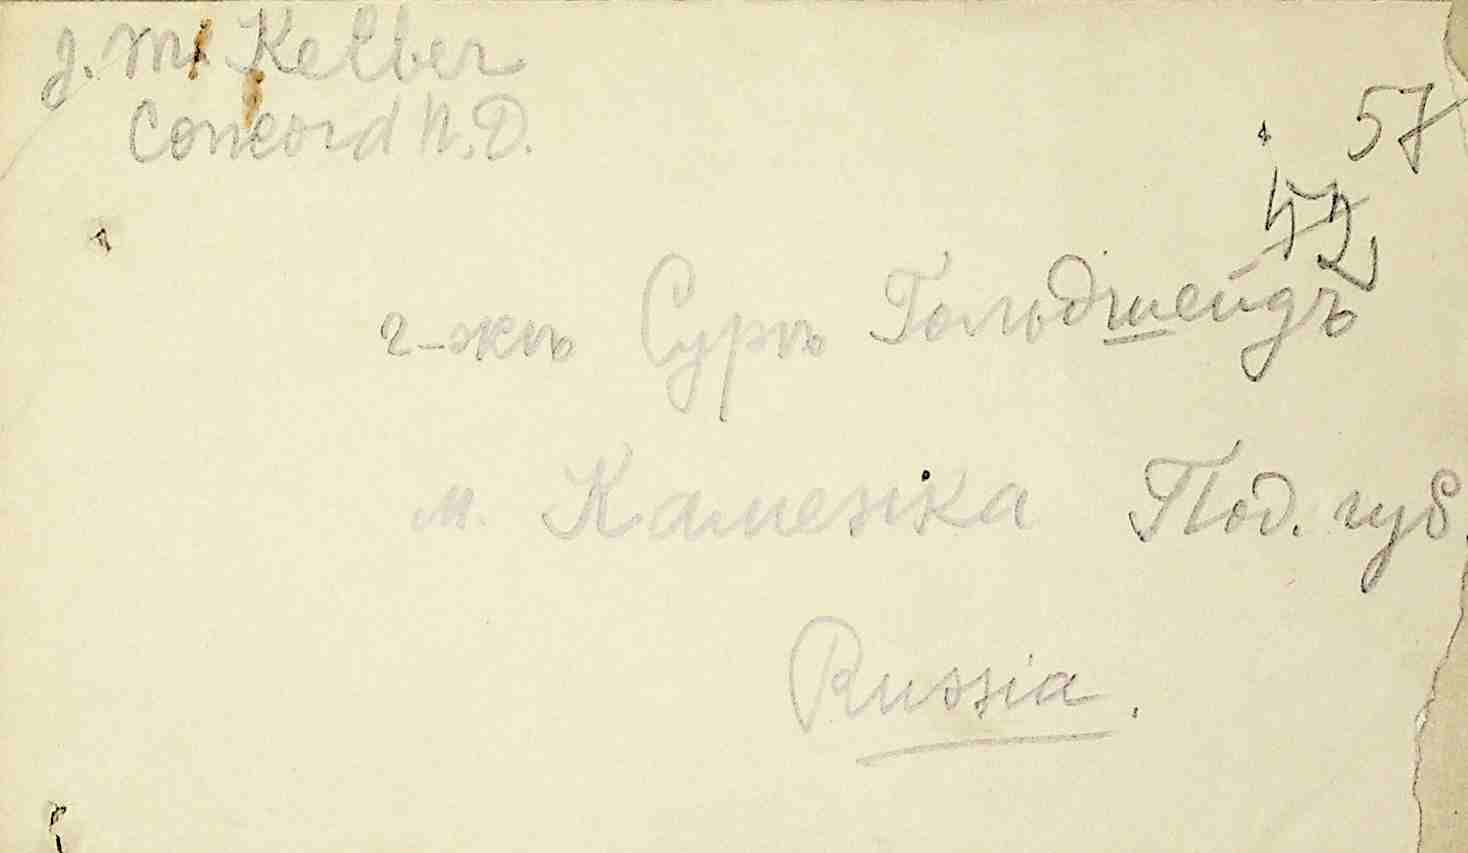 J. M. Kelber
Concord N. D.
57
42
г-жѣ Сурѣ Гольдшейдъ
м. Каменка Под. губ.
Russia.